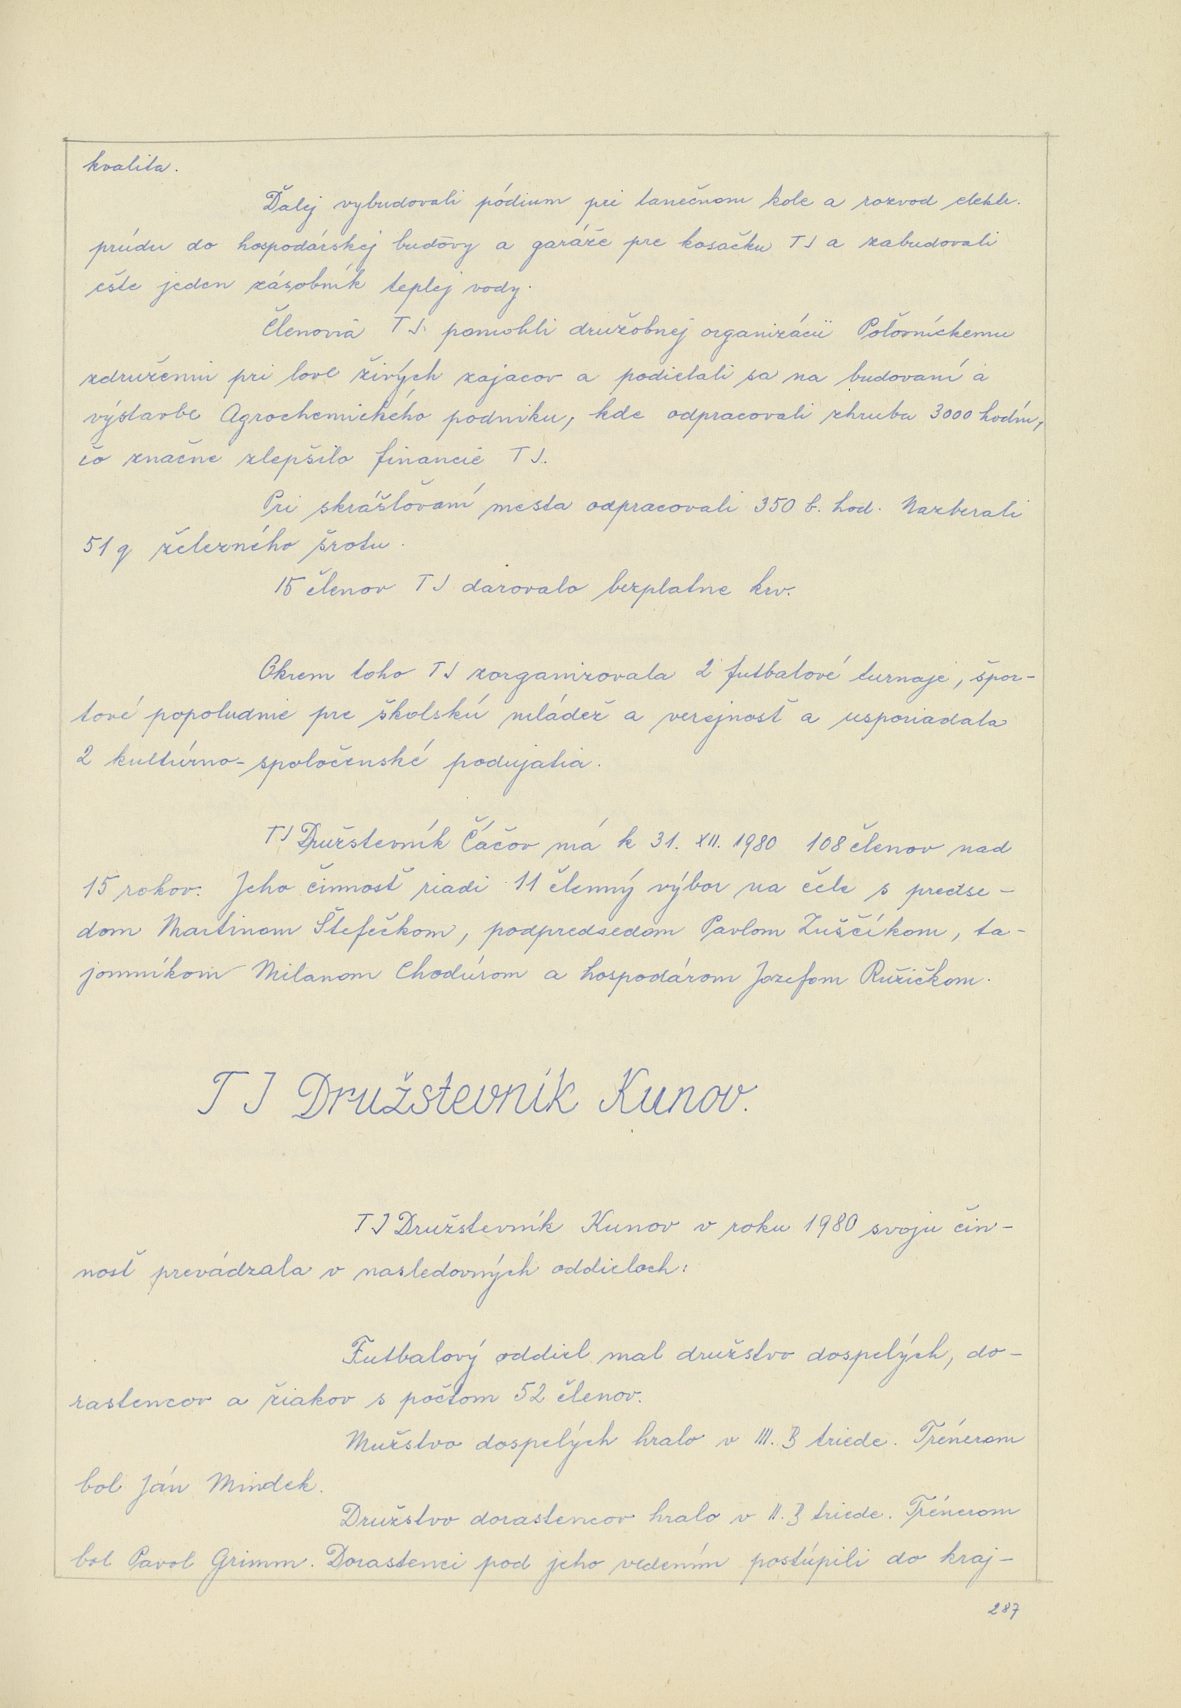 kvalita.
Ďalej vybudovali pódium pri tanečnom kole a rozvod elektr.
prúdu do hospodárskej budovy a garáže pre kosačku TJ a zabudovali
ešte jeden zásobník teplej vody.
Členovia TJ pomohli družobnej organizácii Poľovníckemu
združeniu pri love živých zajacov a podieľali sa na budovaní a
výstavbe Agrochemického podniku, kde odpracovali zhruba 3000 hodín,
čo značne zlepšilo financie TJ.
Pri skrášľovaní mesta odpracovali 350 b. hod. Nazberali
51 q železného šrotu.
15 členov TJ darovalo bezplatne krv.
Okrem toho TJ zorganizovala 2 futbalové turnaje, špor-
tové popoludnie pre školskú mládež a verejnosť a usporiadala
2 kultúrno-spoločenské podujatia.
TJ Družstevník Čáčov má k 31. XII. 1980 108 členov nad
15 rokov. Jeho činnosť riadi 11 členný výbor na čele s predse-
dom Martinom Štefečkom, podpredsedom Pavlom Zuščíkom, ta-
jomníkom Milanom Chodúrom a hospodárom Jozefom Ružičkom.
TJ Družstevník Kunov.
TJ Družstevník Kunov v roku 1980 svoju čin-
nosť prevádzala v nasledovných oddieloch:
Futbalový oddiel mal družstvo dospelých, do-
rastencov a žiakov s počtom 52 členov.
Mužstvo dospelých hralo v III. B triede. Trénerom
bol Ján Mindek.
Družstvo dorastencov hralo v II. B triede. Trénerom
bol Pavol Grimm. Dorastenci pod jeho vedením postúpili do kraj-
287